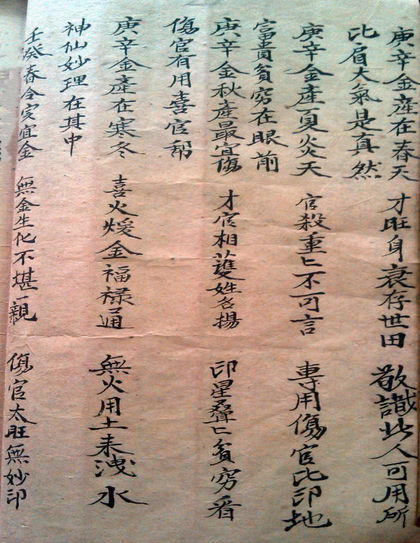 庚辛金產在春天 才旺身衰存世田 敬識此人可用所
比肩大氣是真然
庚辛金產夏炎天 官殺重匕不可言 專用傷官比印地
富貴貧穷在眼前
庚辛金秋產最宜傷 才官相雙姓名揚 印星疊匕貧穷看
傷官有用喜官
庚辛金產在寒冬 喜火煖金福祿通 無火用土来洩水
神仙妙理在其中
壬癸春令安宜金 無金生化不堪親 傷官太旺無妙印